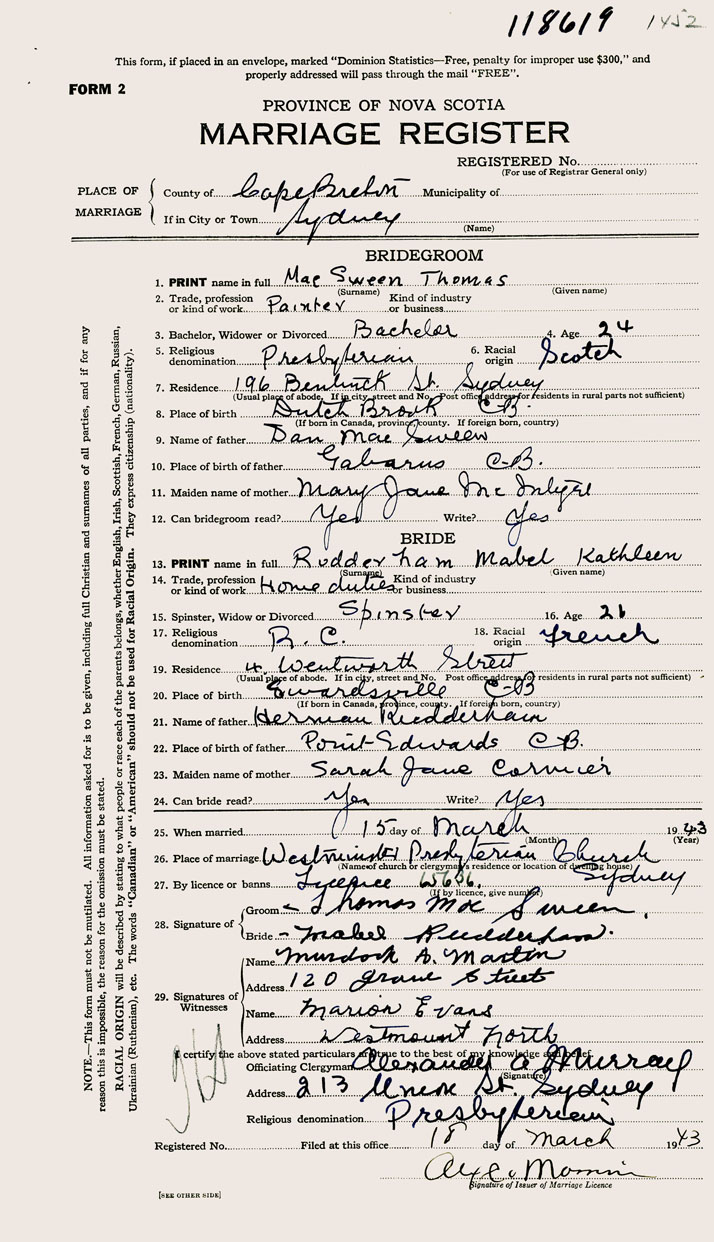 118619 1452
This form, if placed in an envelope, marked "Dominion Statistics—Free, penalty for improper use $300," and
properly addressed will pass through the mail "FREE".
FORM 2
PROVINCE OF NOVA SCOTIA
MARRIAGE REGISTER
REGISTERED No.
(For use of Registrar General only)
PLACE OF MARRIAGE
County of Cape Breton Municipality of
If in City or Town Sydney
(Name)
BRIDEGROOM
1. PRINT name in full Mac Sween Thomas
(Surname) (Given name)
2. Trade, profession or kind of work Painter Kind of industry or business
3. Bachelor, Widower or Divorced Bachelor 4. Age 24
5. Religious denomination Presbyterian 6. Racial origin Scotch
7. Residence 196 Bentinck St. Sydney
(Usual place of abode. If in city, street and No. Post office address for residents in rural parts not sufficient)
8. Place of birth Dutch Brook C.B.
(If born in Canada, province, county. If foreign born, country)
9. Name of father Dan Mac Sween
10. Place of birth of father Gabarus C-B.
11. Maiden name of mother Mary Jane Mc Intyre
12. Can bridegroom read? Yes Write? Yes
BRIDE
13. PRINT name in full Rudderham Mabel Kathleen
(Surname) (Given name)
14. Trade, profession or kind of work Home duties Kind of industry or business
15. Spinster, Widow or Divorced Spinster 16. Age 21
17. Religious denomination R.C. 18. Racial origin French
19. Residence 4. Wentworth Street
(Usual place of abode. If in city, street and No. Post office address for residents in rural parts not sufficient)
20. Place of birth Edwardsville C-B
(If born in Canada, province, county. If foreign born, country)
21. Name of father Herman Rudderham
22. Place of birth of father Point-Edwards C.B.
23. Maiden name of mother Sarah Jane Cormier
24. Can bride read? Yes Write? Yes
25. When married 15 day of March 1943
(Month) (Year)
26. Place of marriage Westminster Presbyterian Church
(Name of church or clergyman's residence or location of dwelling house)
Sydney
27. By licence or banns Licence
(If by licence, give number)
28. Signature of
Groom - Thomas Mac Sween.
Bride - Mabel Rudderham.
29. Signatures of Witnesses
Name Murdock A. Martin
Address 120 Grove Street
Name Marion Evans
Address Westmount North
I certify the above stated particulars are true to the best of my knowledge and belief.
Officiating Clergyman Alexander A Murray
(Signature)
Address 213 Union St. Sydney
Religious denomination Presbyterian
Registered No. Filed at this office 18 day of March 1943
Signature of Issuer of Marriage Licence
[SEE OTHER SIDE]
NOTE.—This form must not be mutilated. All information asked for is to be given, including full Christian and surnames of all parties, and if for any
reason this is impossible, the reason for the omission must be stated.
RACIAL ORIGIN will be described by stating to what people or race each of the parents belongs, whether English, Irish, Scottish, French, German, Russian,
Ukrainian (Ruthenian), etc. The words "Canadian" or "American" should not be used for Racial Origin. They express citizenship (nationality).